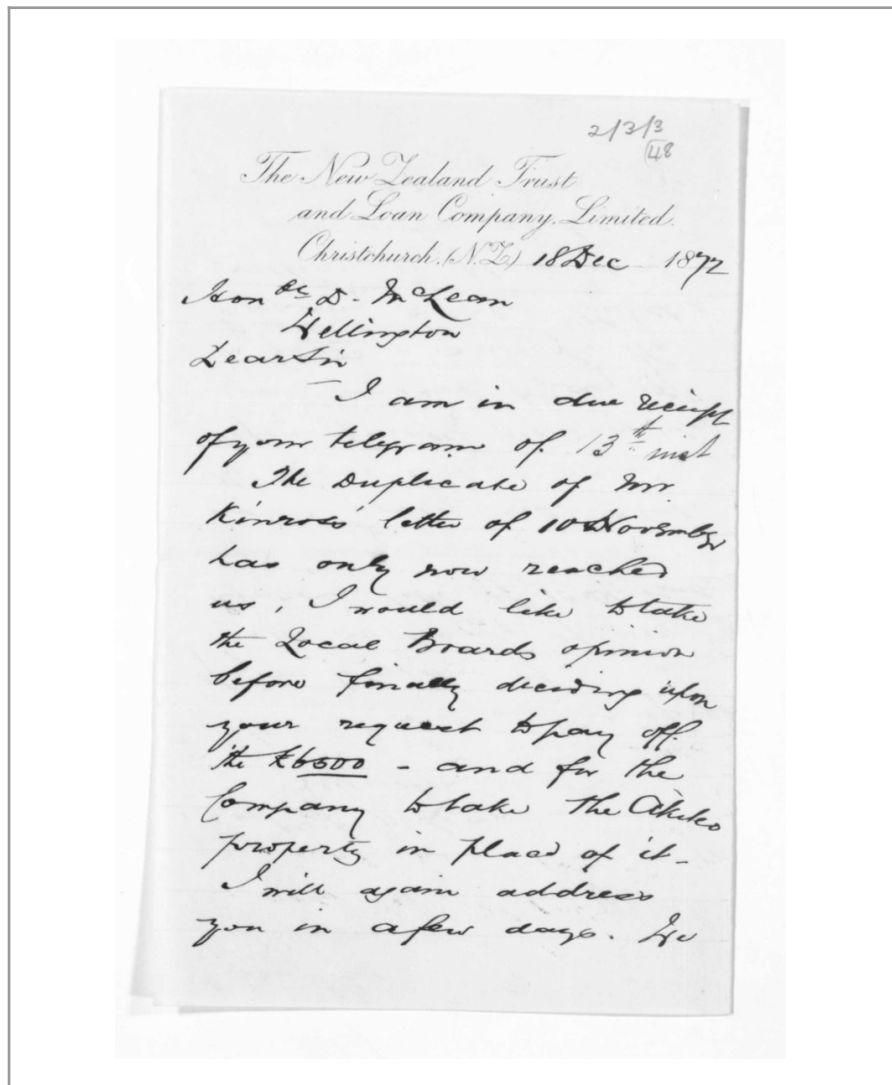 2/3/3
48
The New Zealand Trust
and Loan Company, Limited.
Christchurch, (N.Z.) 18 Dec 1872
Honble D. McLean
Wellington
Dear Sir
I am in due receipt
of your telegram of 13th inst
The Duplicate of Mr.
Kinross' letter of 10 November
has only now reached
us, I would like to take
the Local Boards opinion
before finally deciding upon
your request to pay off
the £6500 - and for the
Company to take the Akitio
property in place of it -
I will again address
you in a few days. We